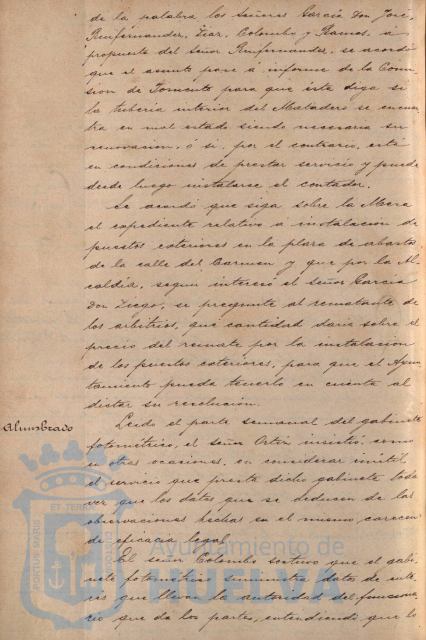 de la palabra los Señores García Don José,
Runfernander, Diaz, Colombo y Ramos, a
propuesta del Señor Runfernander, se acordó
que el asunto pase á informe de la Comi-
sion de Fomento para que esta diga si
la tuberia interior del Matadero se encuen-
tra en mal estado siendo necesaria su
renovacion, ó si, por el contrario, está
en condiciones de prestar servicio y puede
desde luego instalarse el contador.
Se acordó que siga sobre la Mesa
el expediente relativo á instalacion de
puestos exteriores en la plaza de abastos
de la calle del Carmen y que por la Al-
caldia, segun interesó el señor García
Don Diego, se pregunte al rematante de
los arbitrios, que cantidad daria sobre el
precio del remate por la instalacion
de los puestos exteriores, para que el Ayun-
tamiento pueda tenerlo en cuenta al
dictar su resolucion.
Alumbrado
Leido el parte semanal del gabinete
fotométrico, el señor Ortiz insistió como
en otras ocasiones, en considerar inútil
el servicio que presta dicho gabinete toda
vez que los datos que se deducen de las
observaciones hechas en el mismo carecen
de eficacia legal.
El señor Colombo sostuvo que el gabi-
nete fotométrico suministra datos de inte-
rés que lleva la autoridad del funciona-
rio que da los partes, entendiendo que lo
PORTUS MARIS
ET TERRE
CUSTODIA
Ayuntamiento de
HUELVA